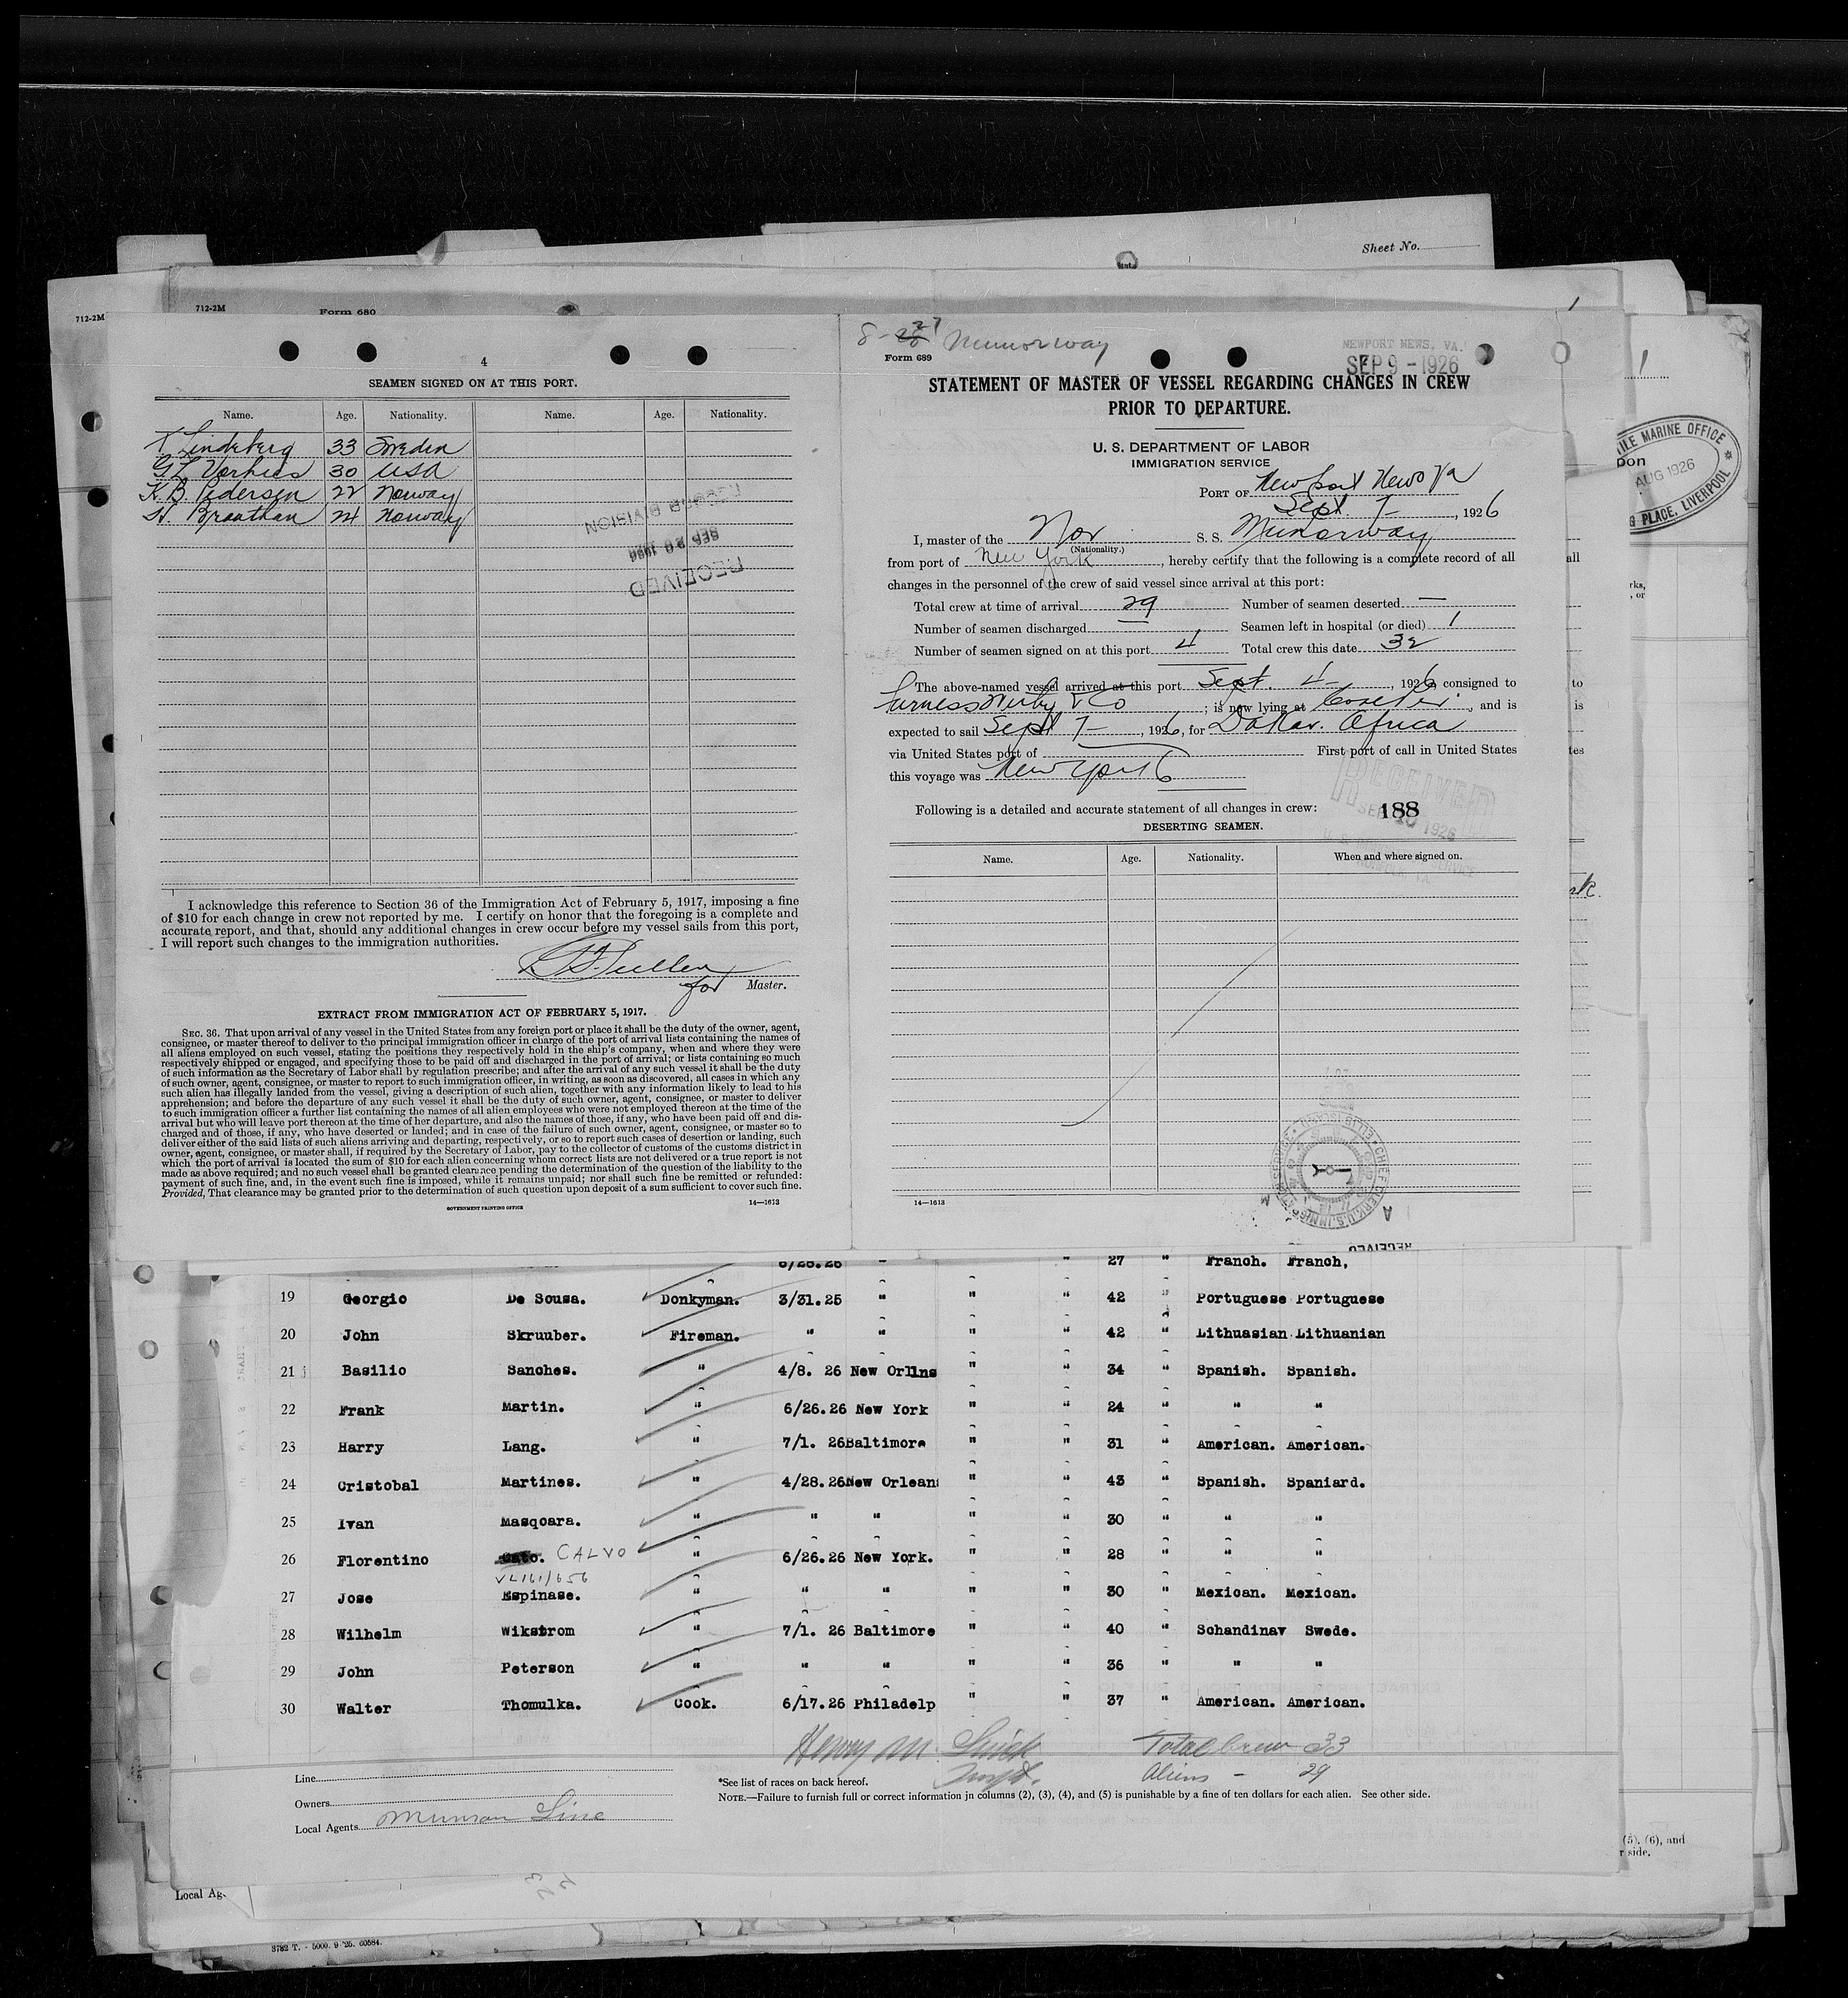 Sheet No.
712-2M
712-2M
Form 680
4
SEAMEN SIGNED ON AT THIS PORT.
Name. Age. Nationality. Name. Age. Nationality.
T Lindeberg 33 Sweden
G L Vorhies 30 USA
K. B. Pedersen 22 Norway
H. Braathan 24 Norway
RECORD DIVISION
RECEIVED
I acknowledge this reference to Section 36 of the Immigration Act of February 5, 1917, imposing a fine
of $10 for each change in crew not reported by me. I certify on honor that the foregoing is a complete and
accurate report, and that, should any additional changes in crew occur before my vessel sails from this port,
I will report such changes to the immigration authorities.
for Master.
EXTRACT FROM IMMIGRATION ACT OF FEBRUARY 5, 1917.
SEC. 36. That upon arrival of any vessel in the United States from any foreign port or place it shall be the duty of the owner, agent,
consignee, or master thereof to deliver to the principal immigration officer in charge of the port of arrival lists containing the names of
all aliens employed on such vessel, stating the positions they respectively hold in the ship's company, when and where they were
respectively shipped or engaged, and specifying those to be paid off and discharged in the port of arrival; or lists containing so much
of such information as the Secretary of Labor shall by regulation prescribe; and after the arrival of any such vessel it shall be the duty
of such owner, agent, consignee, or master to report to such immigration officer, in writing, as soon as discovered, all cases in which any
such alien has illegally landed from the vessel, giving a description of such alien, together with any information likely to lead to his
apprehension; and before the departure of any such vessel it shall be the duty of such owner, agent, consignee, or master to deliver
to such immigration officer a further list containing the names of all alien employees who were not employed thereon at the time of the
arrival but who will leave port thereon at the time of her departure, and also the names of those, if any, who have been paid off and dis-
charged and of those, if any, who have deserted or landed; and in case of the failure of such owner, agent, consignee, or master so to
deliver either of the said lists of such aliens arriving and departing, respectively, or so to report such cases of desertion or landing, such
owner, agent, consignee, or master shall, if required by the Secretary of Labor, pay to the collector of customs of the customs district in
which the port of arrival is located the sum of $10 for each alien concerning whom correct lists are not delivered or a true report is not
made as above required; and no such vessel shall be granted clearance pending the determination of the question of the liability to the
payment of such fine, and, in the event such fine is imposed, while it remains unpaid; nor shall such fine be remitted or refunded:
Provided, That clearance may be granted prior to the determination of such question upon deposit of a sum sufficient to cover such fine.
GOVERNMENT PRINTING OFFICE 14—1613
8-27 Munorway
Form 689
NEWPORT NEWS, VA.
SEP 9 - 1926
STATEMENT OF MASTER OF VESSEL REGARDING CHANGES IN CREW
PRIOR TO DEPARTURE.
U. S. DEPARTMENT OF LABOR
IMMIGRATION SERVICE
PORT OF Newport News Va
Sept. 7-, 1926
I, master of the Nor S. S. Munorway
(Nationality.)
from port of New York, hereby certify that the following is a complete record of all
changes in the personnel of the crew of said vessel since arrival at this port:
Total crew at time of arrival 29 Number of seamen deserted —
Number of seamen discharged — Seamen left in hospital (or died) 1
Number of seamen signed on at this port 4 Total crew this date 32
The above-named vessel arrived at this port Sept. 4-, 1926, consigned to
Furness Withy & Co; is now lying at Coal Pier, and is
expected to sail Sept 7-, 1926, for Dakar. Africa
via United States port of — First port of call in United States
this voyage was New York
Following is a detailed and accurate statement of all changes in crew: 188
RECEIVED
SEP 10 1926
DESERTING SEAMEN.
Name. Age. Nationality. When and where signed on.
14—1613
CHIEF CLERK U.S. IMMIGRATION SERVICE ELLIS ISLAND
RECEIVED
MARINE OFFICE
AUG 1926
PLACE, LIVERPOOL
6/26.26 " " 27 " Franch. Franch,
19 Georgio De Sousa. Donkyman. 3/31.25 " " " 42 " Portuguese Portuguese
20 John Skruuber. Fireman. " " " " 42 " Lithuasian Lithuanian
21 Basilio Sanches. " 4/8. 26 New Orlns " " 34 " Spanish. Spanish.
22 Frank Martin. " 6/26.26 New York " " 24 " " "
23 Harry Lang. " 7/1. 26 Baltimore " " 31 " American. American.
24 Cristobal Martines. " 4/28.26 New Orlean " " 43 " Spanish. Spaniard.
25 Ivan Masqoara. " " " " " 30 " " "
26 Florentino CALVO " 6/26.26 New York. " " 28 " " "
27 Jose Espinase. " " " " " 30 " Mexican. Mexican.
28 Wilhelm Wikstrom " 7/1. 26 Baltimore " " 40 " Schandinav Swede.
29 John Peterson " " " " " 36 " " "
30 Walter Thomulka. Cook. 6/17.26 Philadelp " " 37 " American. American.
Henry M. Total Crew 33
Aliens - 29
Line
*See list of races on back hereof.
NOTE.—Failure to furnish full or correct information in columns (2), (3), (4), and (5) is punishable by a fine of ten dollars for each alien. See other side.
Owners
Local Agents Munson Line
(5), (6), and
r side.
Local Ag
3782 T. - 5000. 9 '25. 60584.